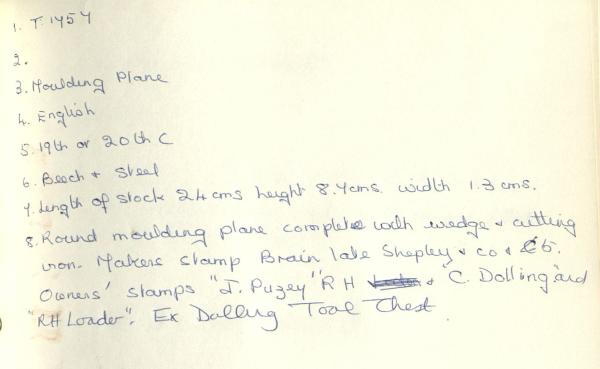 1. T. 1457
2.
3. Moulding Plane
4. English
5. 19th or 20th C
6. Beech + Steel
7. Length of stock 24cms height 8.7cms width 1.3 cms.
8. Round moulding plane complete with wedge + cutting
iron. Makers stamp Brain late Shepley + co + 6.
Owners' stamps "J. Puzey" RH + "C. Dolling" and
"RH Loader". Ex Dalling Tool Chest.